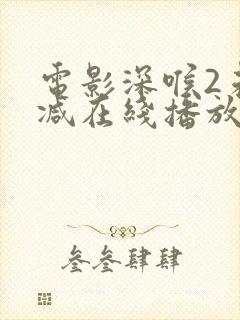 電影深喉2未
减在綫播放
叁叁肆肆